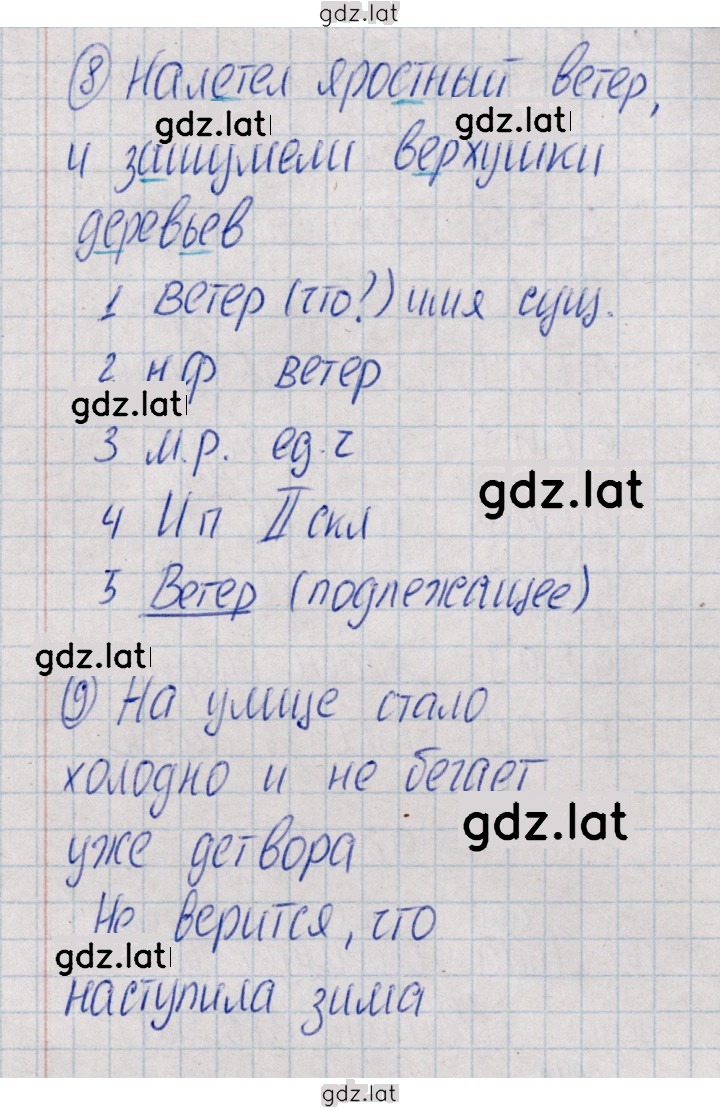 gdz.lat
8 Налетел яростный ветер,
gdz.lat
gdz.lat
и зашумели верхушки
деревьев
1 ветер (что?) имя сущ.
2 н ф ветер
gdz.lat
3 м.р. ед. ч
gdz.lat
4 И п II скл
5 Ветер (подлежащее)
gdz.lat
9 На улице стало
холодно и не бегает
gdz.lat
уже детвора
Не верится, что
gdz.lat
наступила зима
gdz.lat